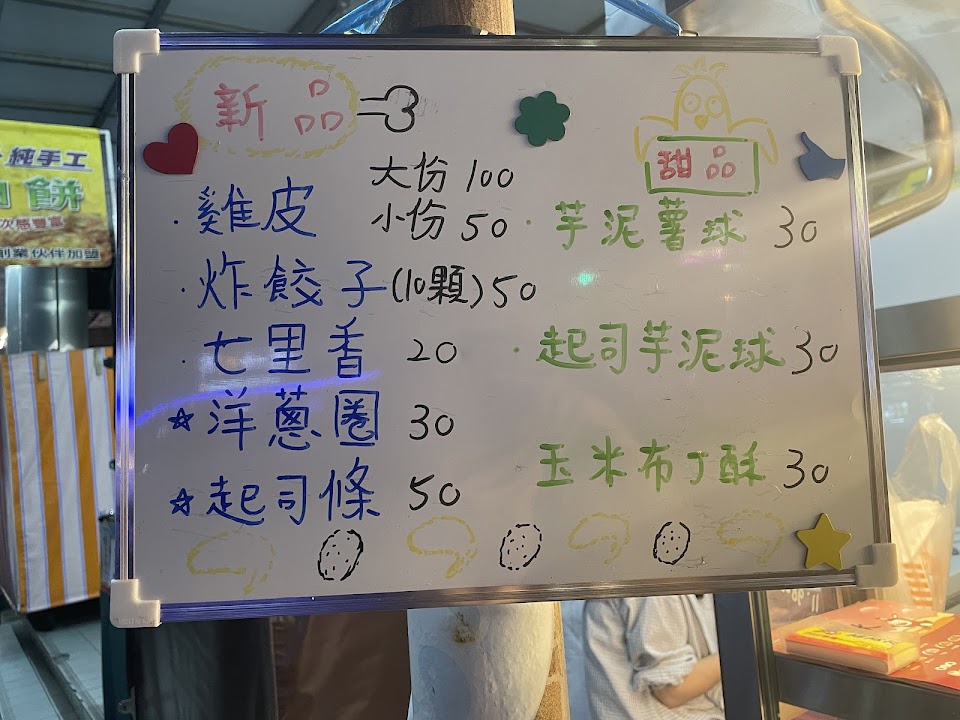 新品
大份 100
·雞皮 小份 50
·炸餃子(10顆) 50
·七里香 20
☆洋蔥圈 30
☆起司條 50
甜品
·芋泥薯球 30
·起司芋泥球 30
玉米布丁酥 30
純手工
餅
創業伙伴加盟